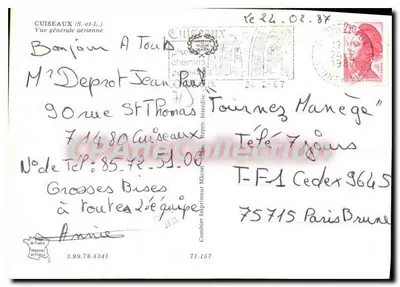 CUISEAUX (S.-et-L.)
Vue générale aérienne
Le 24.02.87
Bonjour A Tous
Mr Deprot Jean Paul
90 rue St Thomas
71480 Cuiseaux
No de Tél: 85.72.51.08
Grosses Bises
à toutes l'équipe
Annie
3.99.78.4341
71.157
CUISEAUX
chemins
24-2-87
2,20
"Tournez Manège"
Télé 7 jours
T-F1 Cedex 9645
75715 Paris Brune